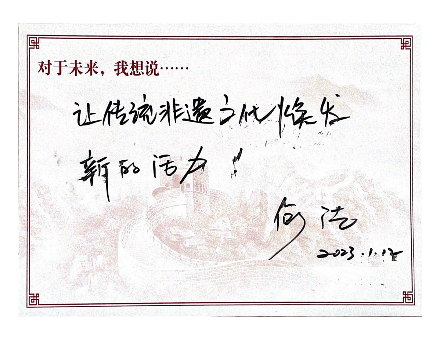 对于未来，我想说……
让传统非遗文化焕发
新的活力！
何
2023.1.12